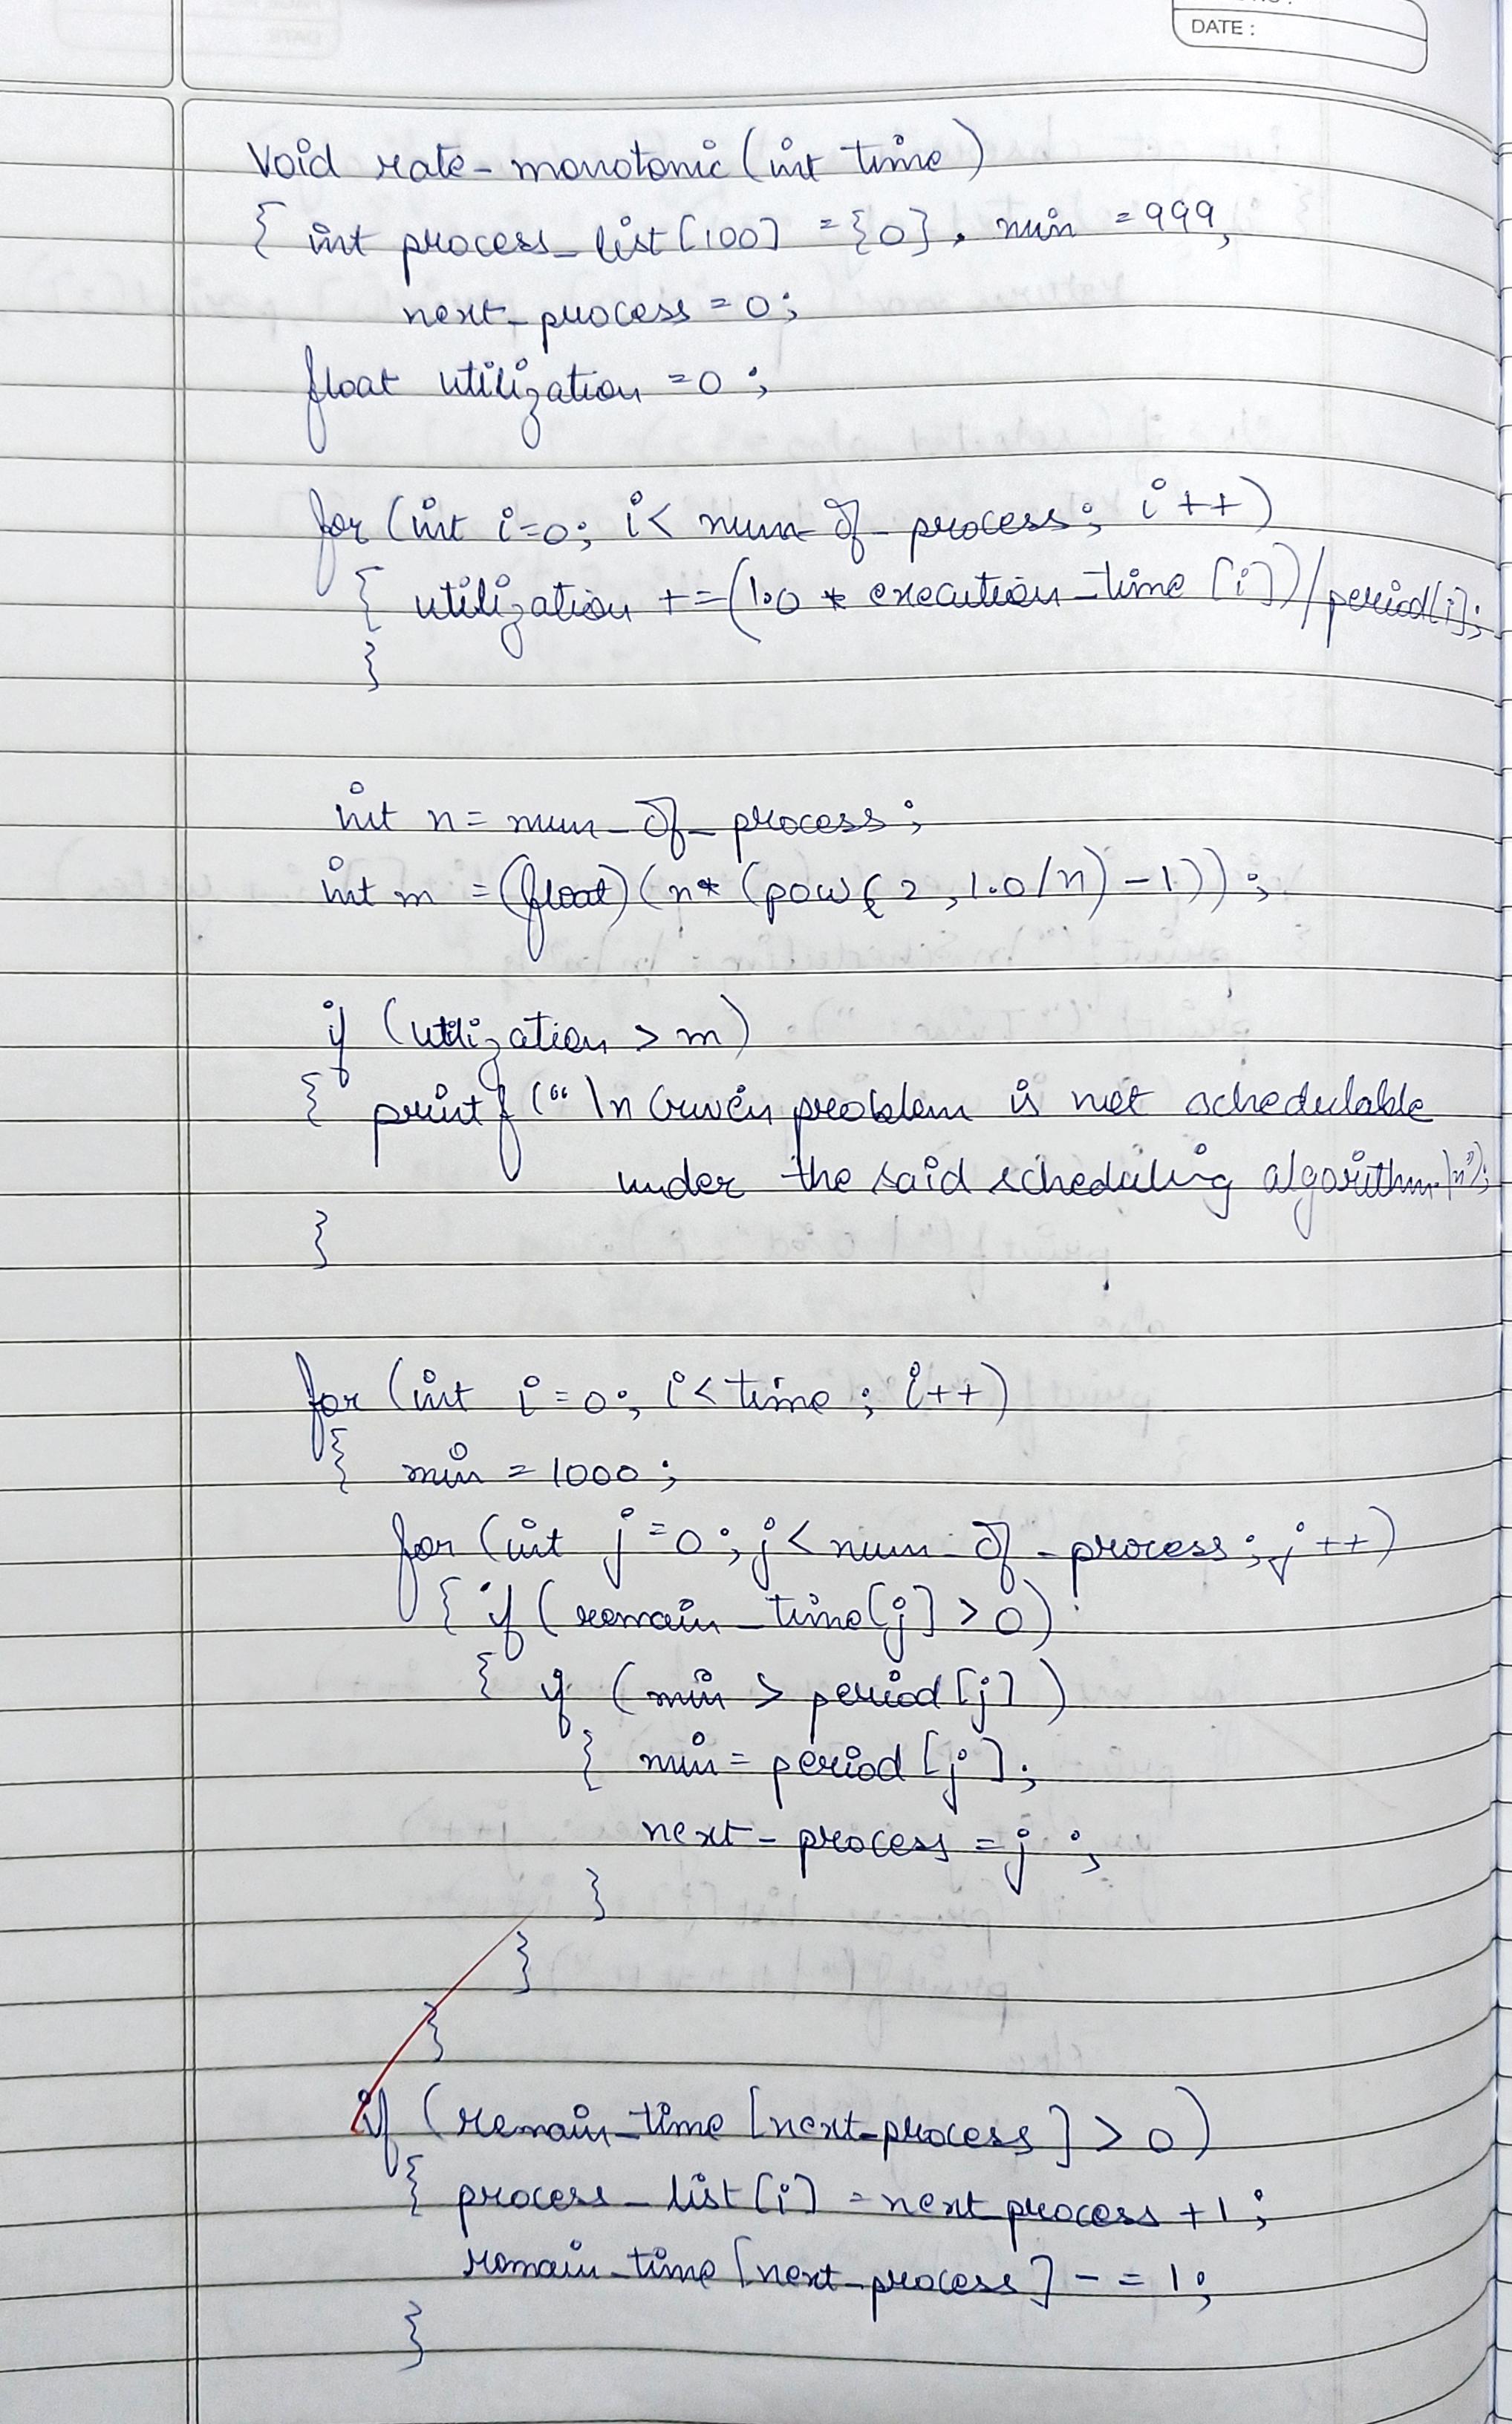 DATE :
Void rate-monotonic (int time)
{ int process_list[100] = {0}, min = 999,
next_process = 0;
float utilization = 0;
for (int i=0; i< num_of_process; i++)
{ utilization += (1.0 * execution_time [i]) / period[i];
}
int n = num_of_process;
int m = (float) (n* (pow(2, 1.0/n) -1));
if (utilization > m)
{ printf ("\n Given problem is not schedulable
under the said scheduling algorithm \n");
}
for (int i=0; i< time; i++)
{ min = 1000;
for (int j=0; j< num_of_process; j++)
{ if (remain_time[j] > 0)
{ if (min > period[j])
{ min = period[j];
next_process = j;
}
}
}
if (remain_time [next_process] > 0)
{ process_list[i] = next_process + 1;
remain_time [next_process] -= 1;
}